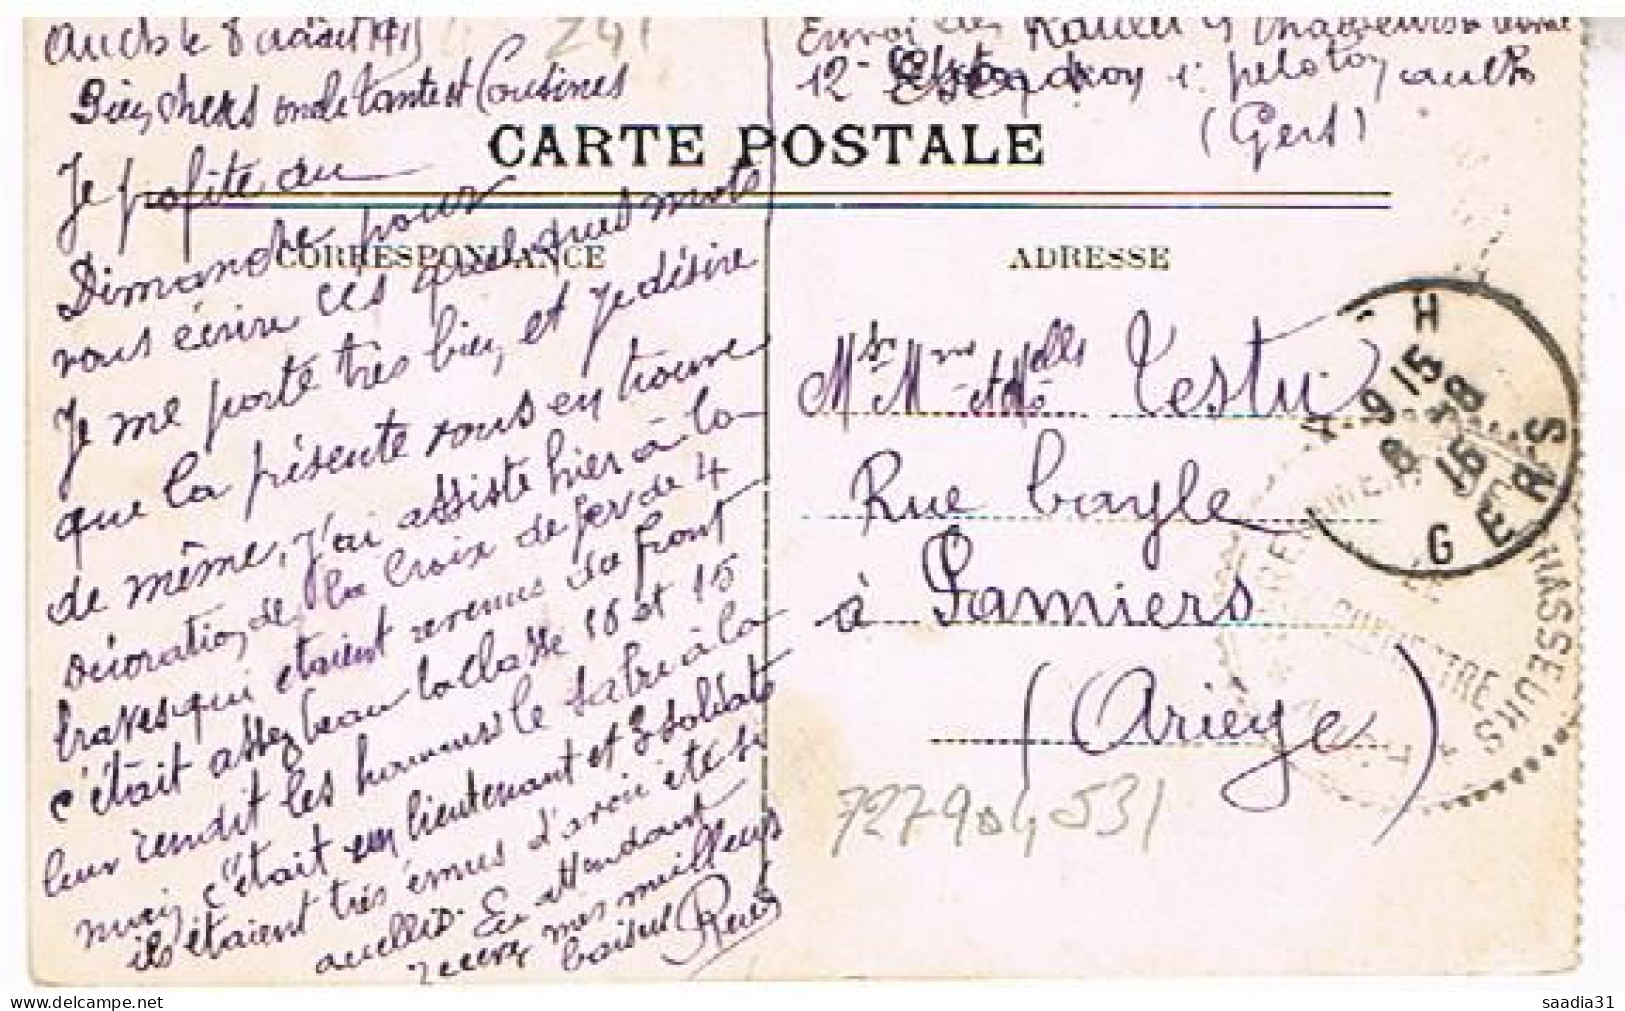 Auch le 8 août 1915
241
Bien chers oncle tante et Cousines
Je profite du
Dimanche pour
vous écrire ces quelques mots
Je me porte très bien et Je désire
que la présente vous en trouve
de même, j'ai assisté hier à la
décoration de la Croix de fer de 4
braves qui étaient revenus du front
c'était assez beau la classe 16 et 15
leur rendit les hommes le sabre à la
main c'était un lieutenant et 3 soldats
ils étaient très émus d'avoir été si
acuellis. En attendant
recevez mes meilleurs
baisers
Envoi de Chasseurs
12e 1r peloton auch
(Gers)
CARTE POSTALE
CORRESPONDANCE
ADRESSE
Mr Mme et Melles Testu
Rue Cayle
à Pamiers
(Ariège)
727904531
AUCH
9 15
8 -8
15
GERS
CHASSEURS
saadia31